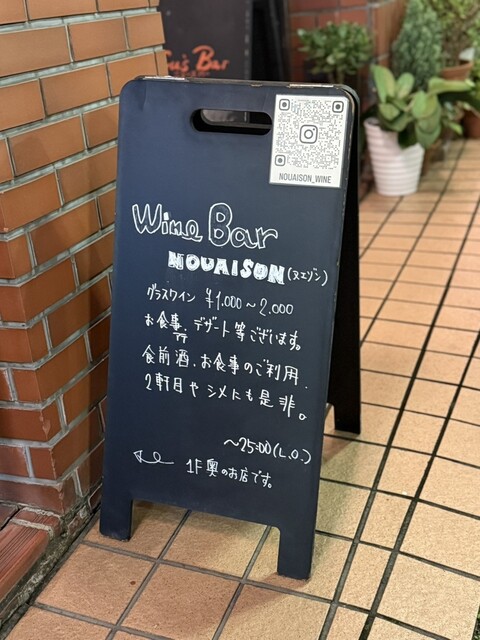 Su's Bar
NOUAISON_WINE
Wine Bar
NOUAISON(ヌエゾン)
グラスワイン ¥1.000～2.000
お食事、デザート等ございます。
食前酒、お食事のご利用、
2軒目やシメにも是非。
～25:00(L.O.)
← 1F奥のお店です。